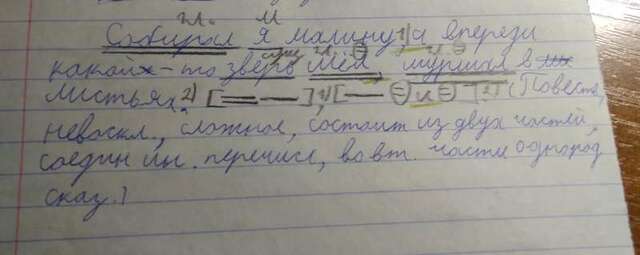 гл. М
Собирал я малину, 1) а впереди
какой-то зверь шёл шуршал в
листьях. 2) [= —], 1) [— ⊖ и ⊖]. 2) (Повеств,
невоскл., сложное, состоит из двух частей,
соедин ин. перечисл, во вт. части однород
сказ.)